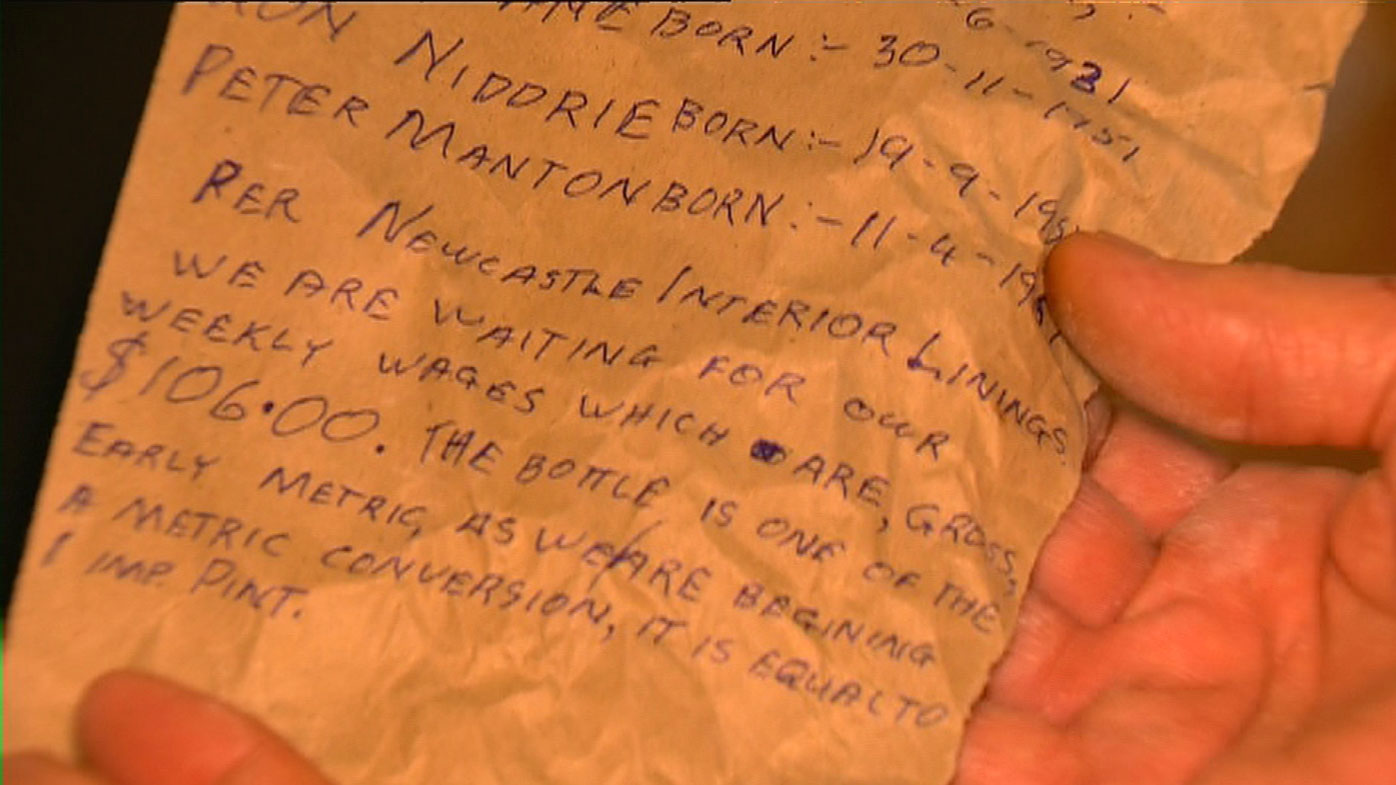 6-1931
BORN :- 30-11-1951
RON NIDDRIE BORN:- 19-9-19
PETER MANTON BORN:- 11-4-19
RER NEWCASTLE INTERIOR LININGS.
WE ARE WAITING FOR OUR
WEEKLY WAGES WHICH ARE, GROSS,
$106.00. THE BOTTLE IS ONE OF THE
EARLY METRIC, AS WE/ARE BEGINING
A METRIC CONVERSION, IT IS EQUAL TO
1 IMP. PINT.